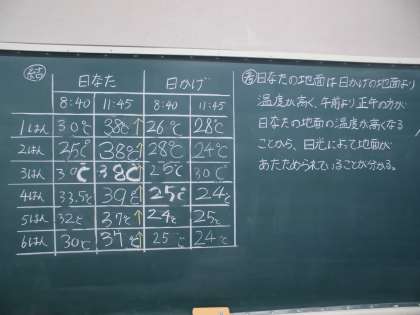 結
日なた 日かげ
8:40 11:45 8:40 11:45
1はん 30℃ 38℃↑ 26℃ 28℃
2はん 25℃ 38℃↑ 28℃ 24℃
3はん 30℃ 38℃↑ 25℃ 30℃
4はん 33.5℃ 39℃↑ 25℃ 24℃
5はん 32℃ 37℃↑ 24℃ 25℃
6はん 30℃ 37℃↑ 25℃ 24℃
考 日なたの地面は日かげの地面より
温度が高く、午前より正午の方が
日なたの地面の温度が高くなる
ことから、日光によって地面が
あたためられていることが分かる。